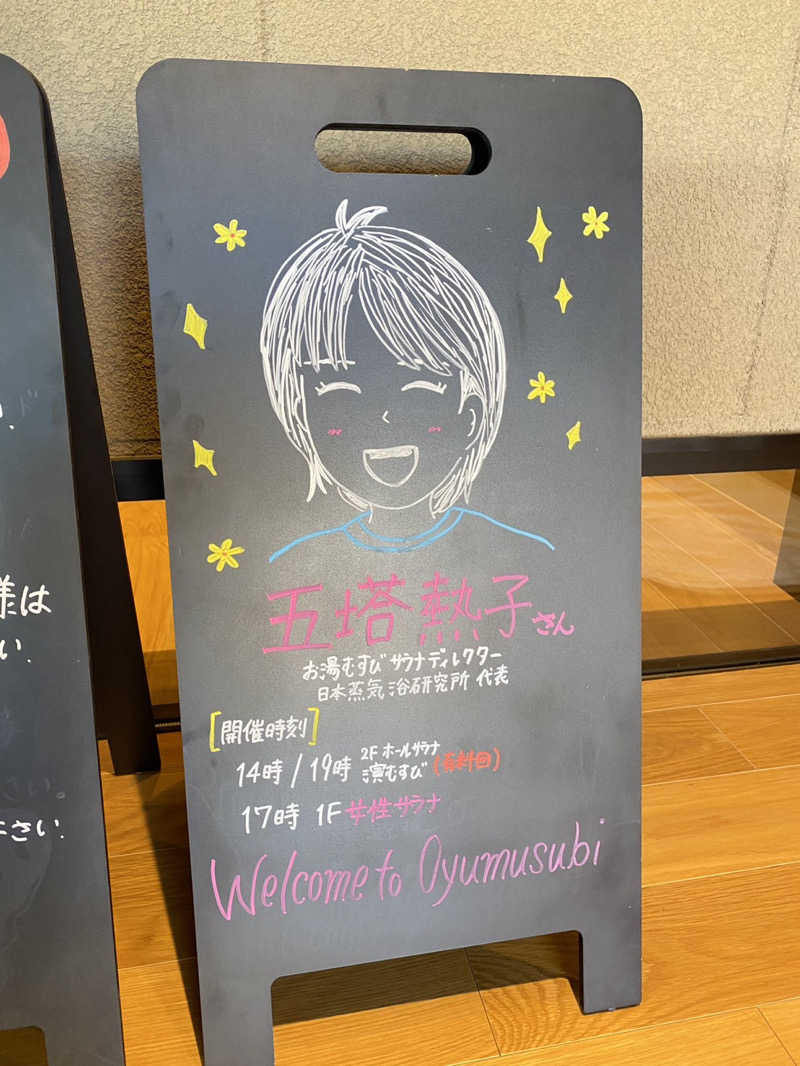 五塔熱子さん
お湯むすび サウナディレクター
日本蒸気浴研究所 代表
[開催時刻]
14時/19時 2F ホールサウナ
湊むすび (有料回)
17時 1F 女性サウナ
Welcome to Oyumusubi
様は
い.
ださい.